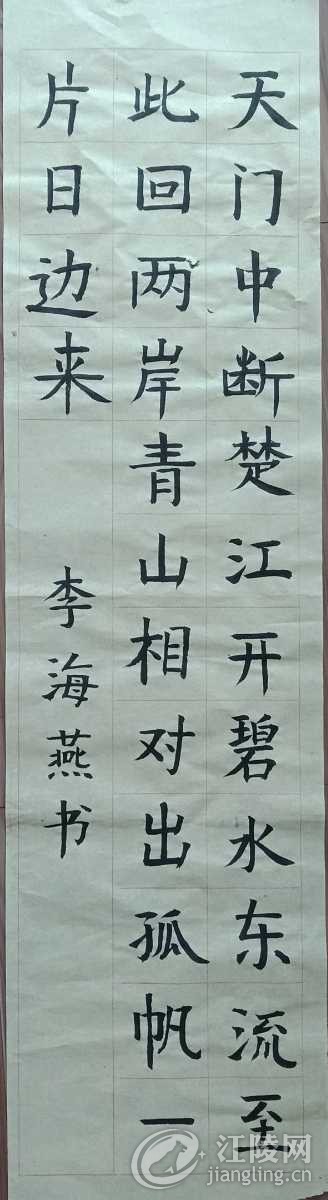 天门中断楚江开碧水东流至
此回两岸青山相对出孤帆一
片日边来
李海燕书
江陵网
jiangling.cn